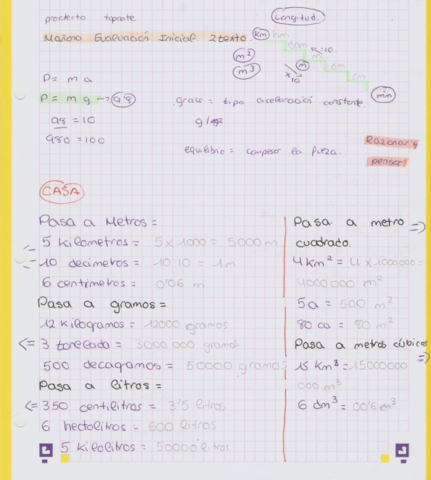 proctecto tipante
Longitud.
Mañana Evaluación Inicial 2 texto.
km hm
dam
m²
m³
÷10
m
x 10
mm
P = m a
P = m g → 9'8
98 = 10
980 = 100
grave = tipo aceleración constante
equilibrio = compensar la fuerza.
Razonar y
pensar
CASA
Pasa a Metros =
5 kilometros = 5 x 1000 = 5000 m
10 decimetros = 10:10 = 1m
6 centimetros = 0'06 m
Pasa a gramos =
12 kilogramos = 12000 gramos
<= 3 tonelada = 3000 000 gramos
500 decagramos = 50000 gramos
Pasa a litros =
<= 350 centilitros = 3'5 litros
6 hectolitros = 600 litros
5 kilolitros = 50000 litros
Pasa a metro =>
cuadrado.
4 km² = 4 x 1000000 =
4000000 m²
5 a = 500 m²
80 ca = 80 m²
Pasa a metros cúbicos =>
15 km³ = 15000000
000 m³
6 dm³ = 00'6 m³